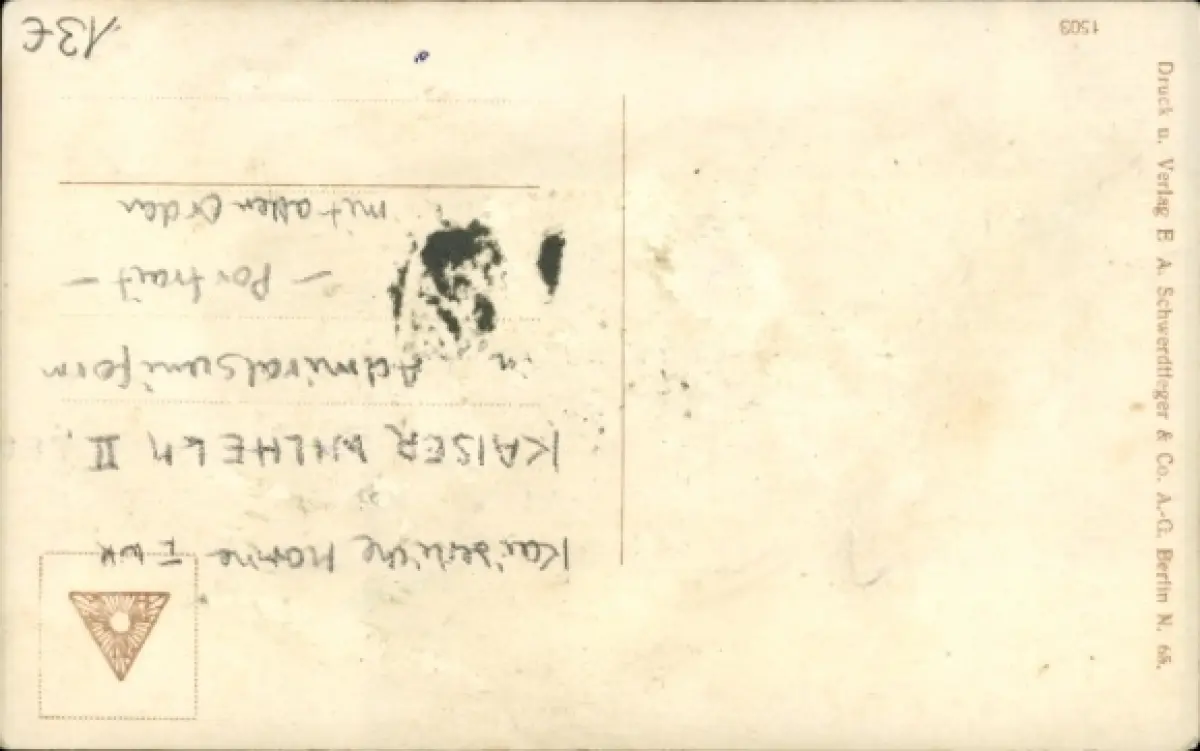 Kaiserliche Marine I WK
KAISER WILHELM II.
in Admiralsuniform
– Portrait –
mit allen Orden
13€
Druck u. Verlag E. A. Schwerdtfeger & Co. A.-G. Berlin N. 65.
1503